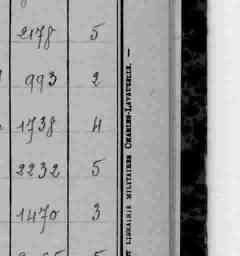 2178 5
993 2
1738 4
2232 5
1470 3
LIBRAIRIE MILITAIRES CHARLES-LAVAUZELLE. —